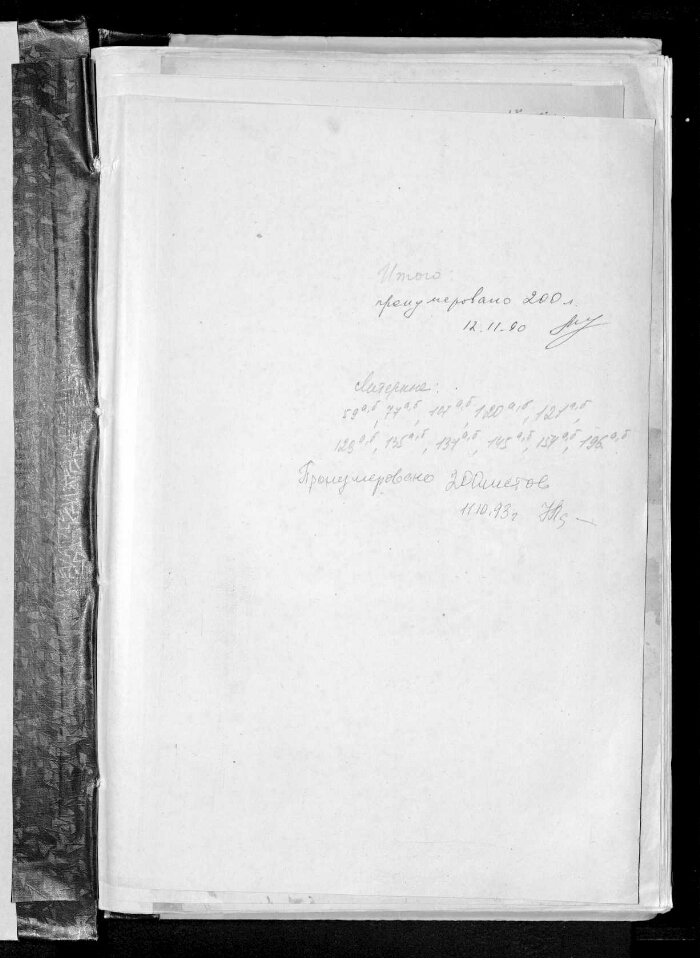 Итого:
пронумеровано 200 л.
12.11.90
Литерные:
59а,б, 77а,б, 107а,б, 120а,б, 121а,б,
123а,б, 135а,б, 137а,б, 145а,б, 157а,б, 196а,б
Пронумеровано 200листов
11.10.93г